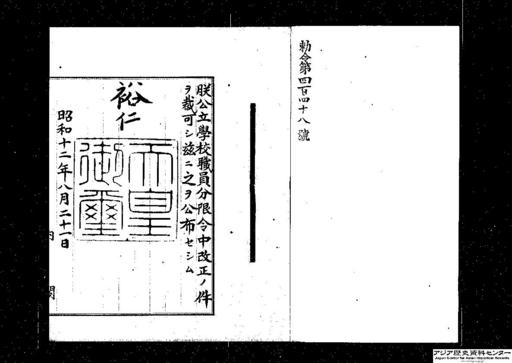 勅令第四百四十八號
朕公立學校職員分限令中改正ノ件
ヲ裁可シ玆ニ之ヲ公布セシム
裕仁
天皇
御璽
昭和十二年八月二十一日
内閣
アジア歴史資料センター
Japan Center for Asian Historical Records